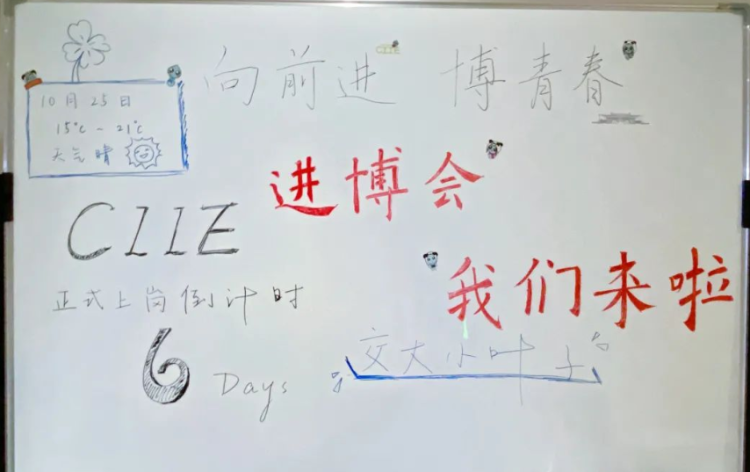 向前进 博青春
10月25日
15℃ - 21℃
天气晴
进博会
CIIE
我们来啦
正式上岗倒计时
6 Days
交大小叶子